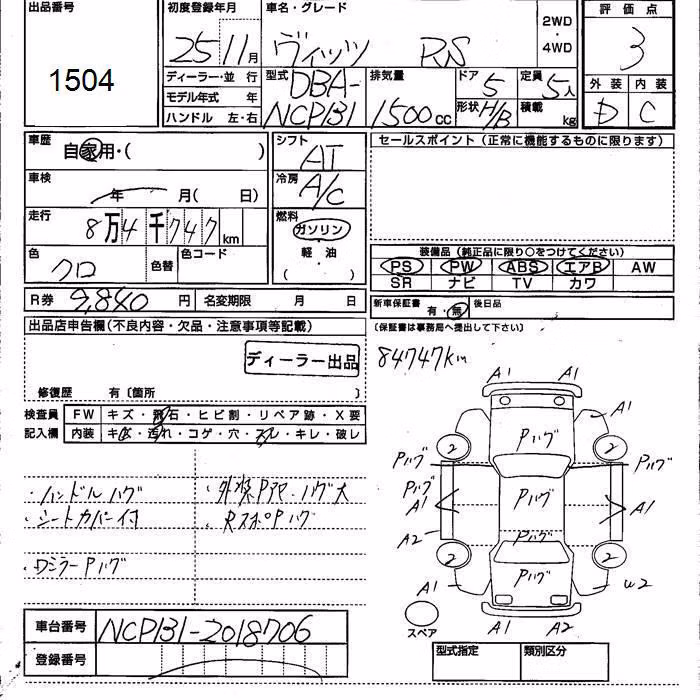 出品番号 初度登録年月 車名・グレード 2WD・4WD 評価点
1504 25 11月 ヴィッツ RS 3
ディーラー・並行 型式 DBA-NCP131 排気量 1500cc ドア 5 定員 5人 外装 内装
モデル年式 年 形状 H/B 積載 kg D C
ハンドル 左・右
車歴 自家用・( ) シフト AT セールスポイント(正常に機能するものに限ります)
車検 年 月( 日) 冷房 A/C
走行 8万4千747km 燃料 ガソリン
軽・油
( )
色 クロ 色替 色コード
装備品(純正品に限り○をつけてください)
PS PW ABS エアB AW
SR ナビ TV カワ
R券 9,840円 名変期限 月 日 新車保証書 有・無 後日品
(保証書は事務局へ提出して下さい)
出品店申告欄(不良内容・欠品・注意事項等記載)
ディーラー出品
84747km
修復歴 有〔箇所 〕
検査員 FW キズ・飛石・ヒビ割・リペア跡・X要
記入欄 内装 キズ・汚れ・コゲ・穴・スレ・キレ・破レ
・ハンドルハゲ
・シートカバー付
・ロミラーPハゲ
・外装Pアセ・ハゲ大
・RスポPハゲ
A1 A1
A1
Pハゲ
2 2
Pハゲ Pハゲ
Pハゲ
A1 Pハゲ A1
A2
Pハゲ
2 2
Pハゲ
A1 W2
A1 A2
スペア
車台番号 NCP131-2018706
登録番号
型式指定 類別区分